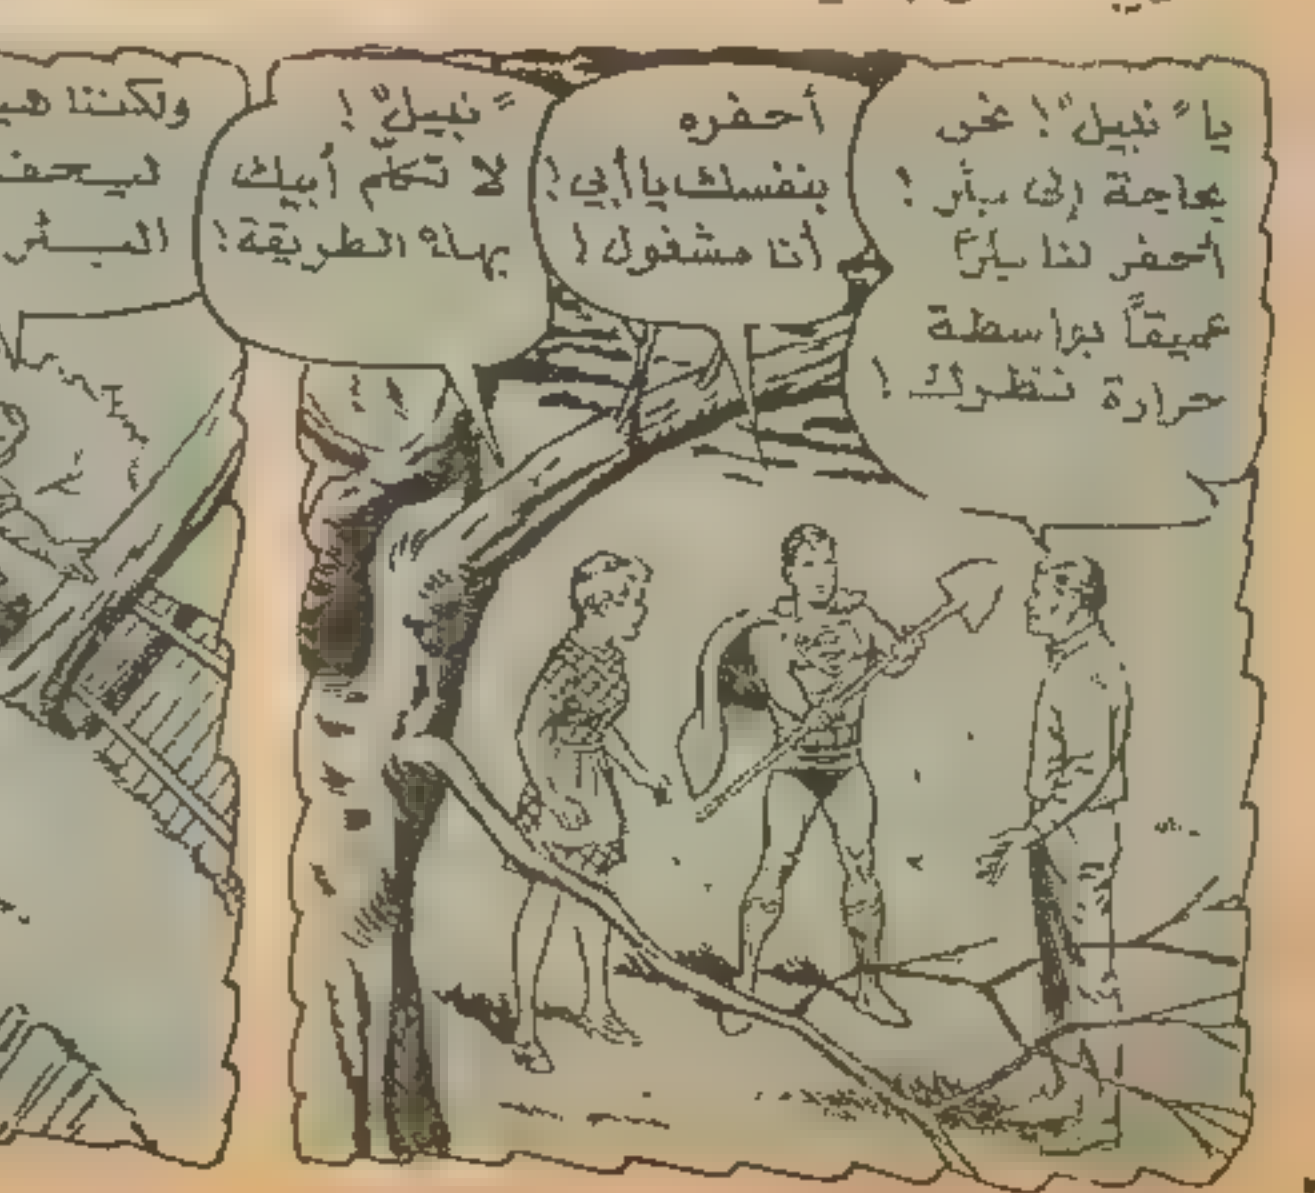 يا "نبيل"! نحن
بحاجة إلى بئر !
أحفر لنا بئرًا
عميقاً بواسطة
حرارة نظرك !
أحفره
بنفسك يا أبي !
أنا مشغول !
"نبيل" !
لا تكلّم أبيك
بهذه الطريقة !
ولكننا
البئر